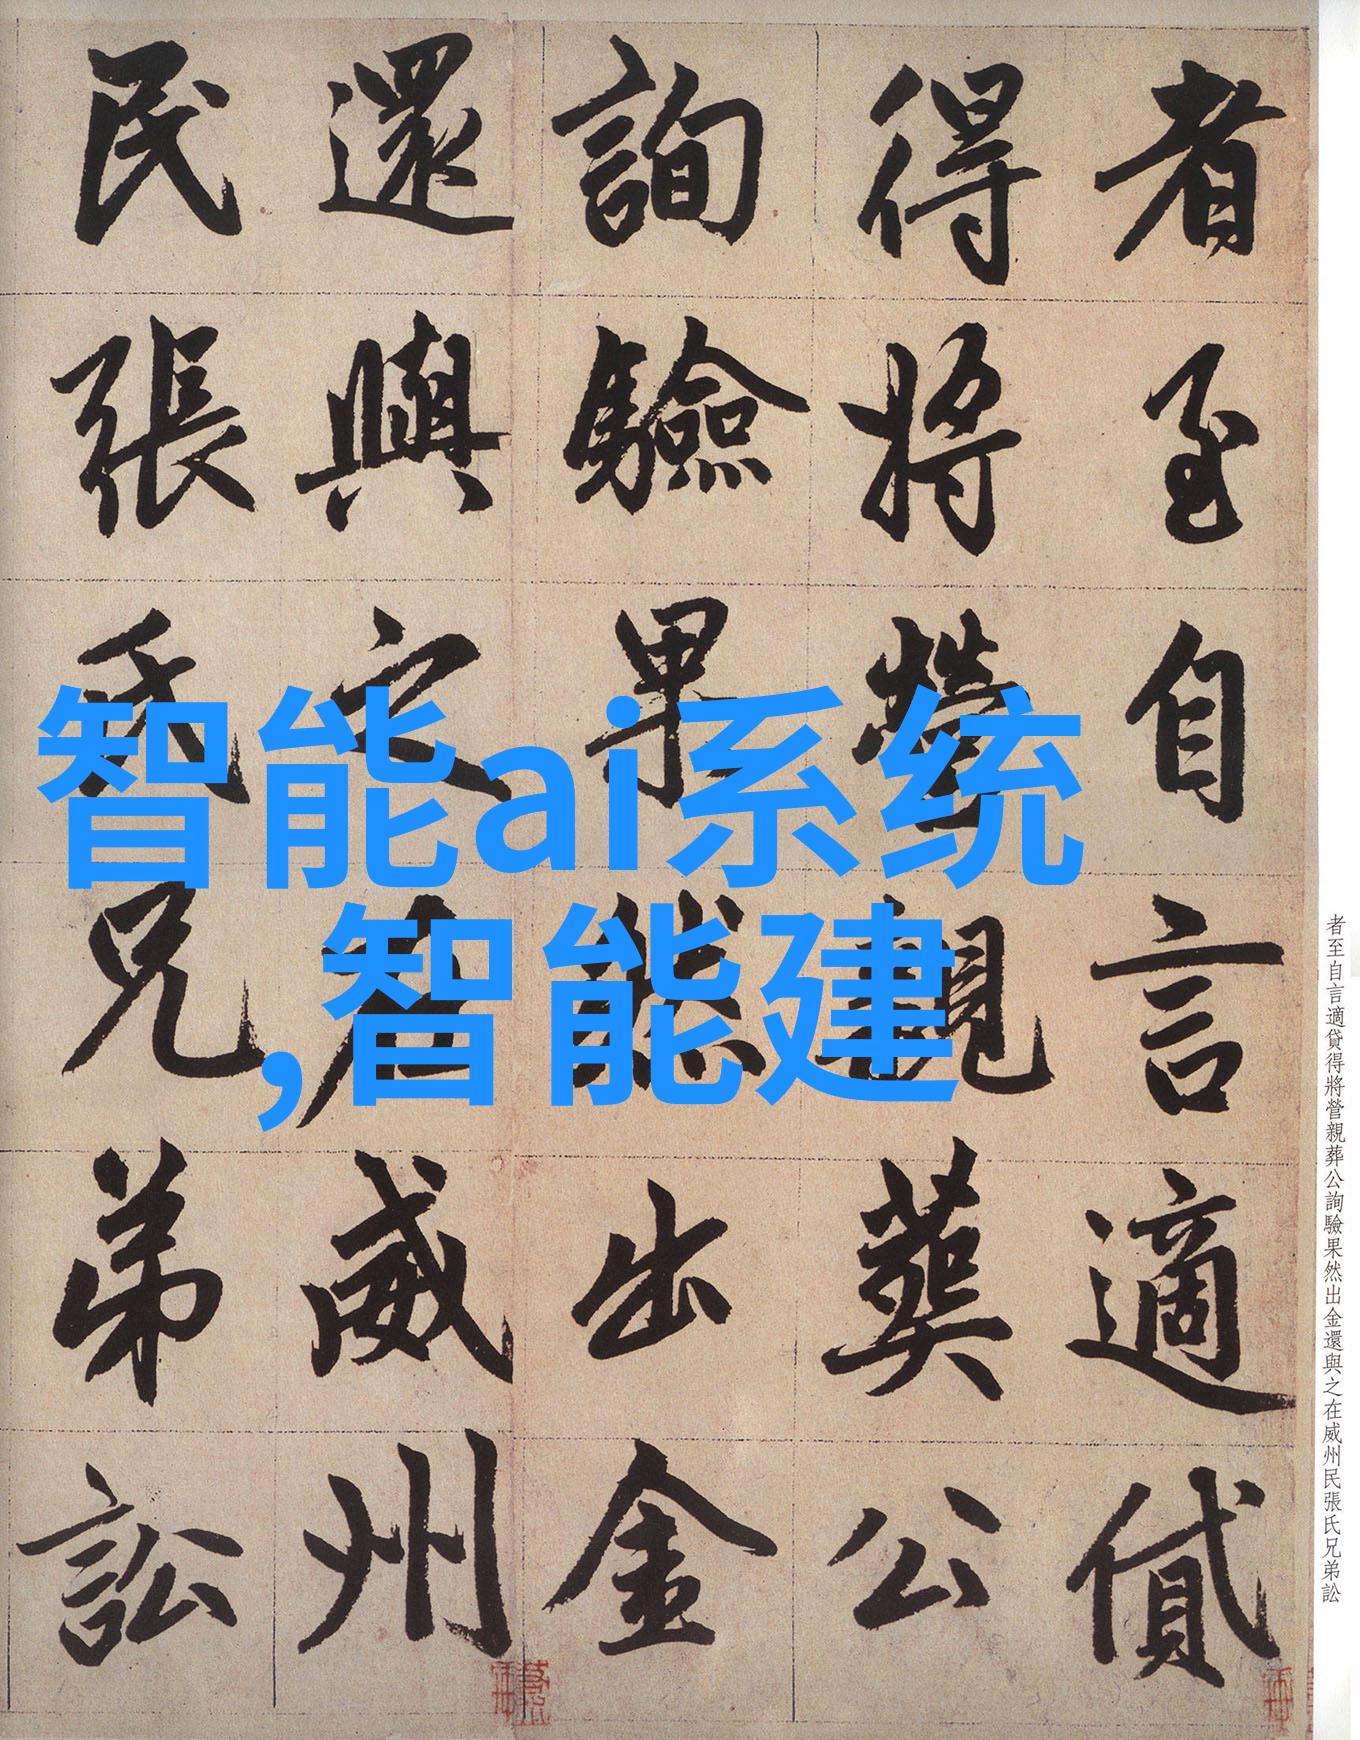 者至自言適貸得將營親葬公詢驗果然出金還與之在威州民張氏兄弟訟
者至自言適貸
得將營親葬公
詢驗果然出金
還與之在威州
民張氏兄弟訟
智能ai系统
,智能建